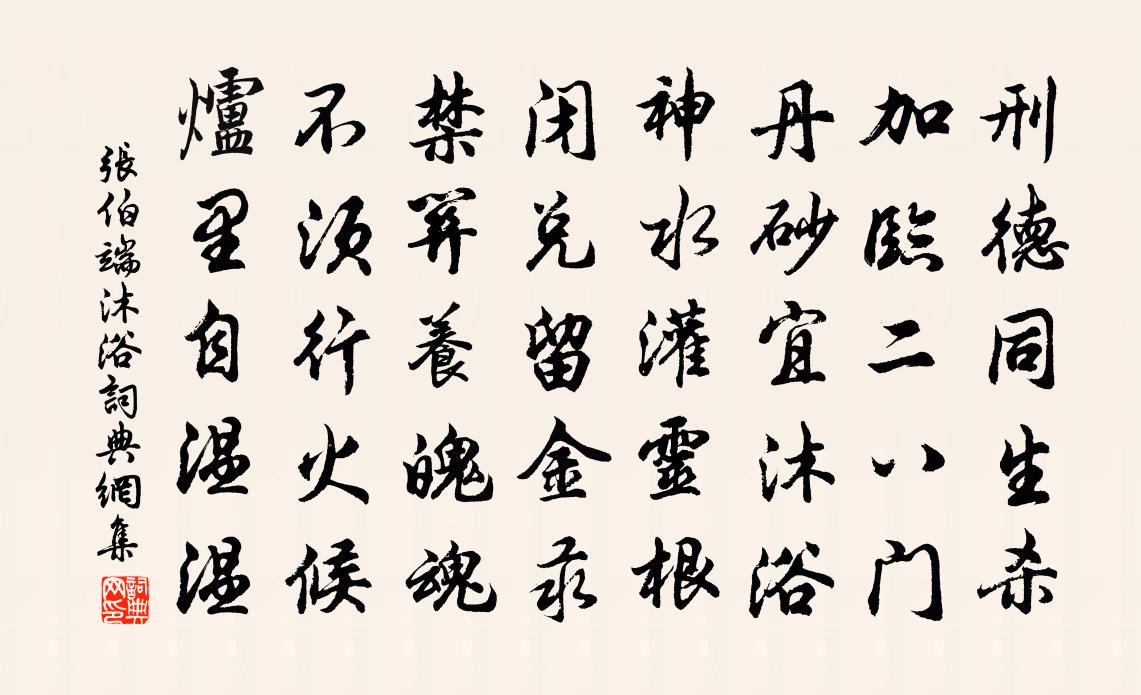 刑德同生杀
加臨二八门
丹砂宜沐浴
神水灌靈根
闭兑留金汞
禁養魄魂
不须行火候
爐里自温温
張伯端沐浴詞典網集
詞典网印